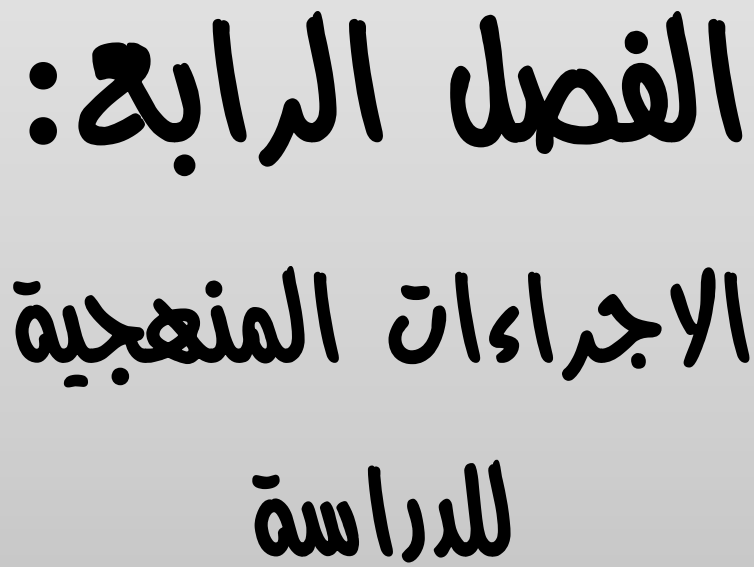 الفصل الرابع:
الاجراءات المنهجية
للدراسة